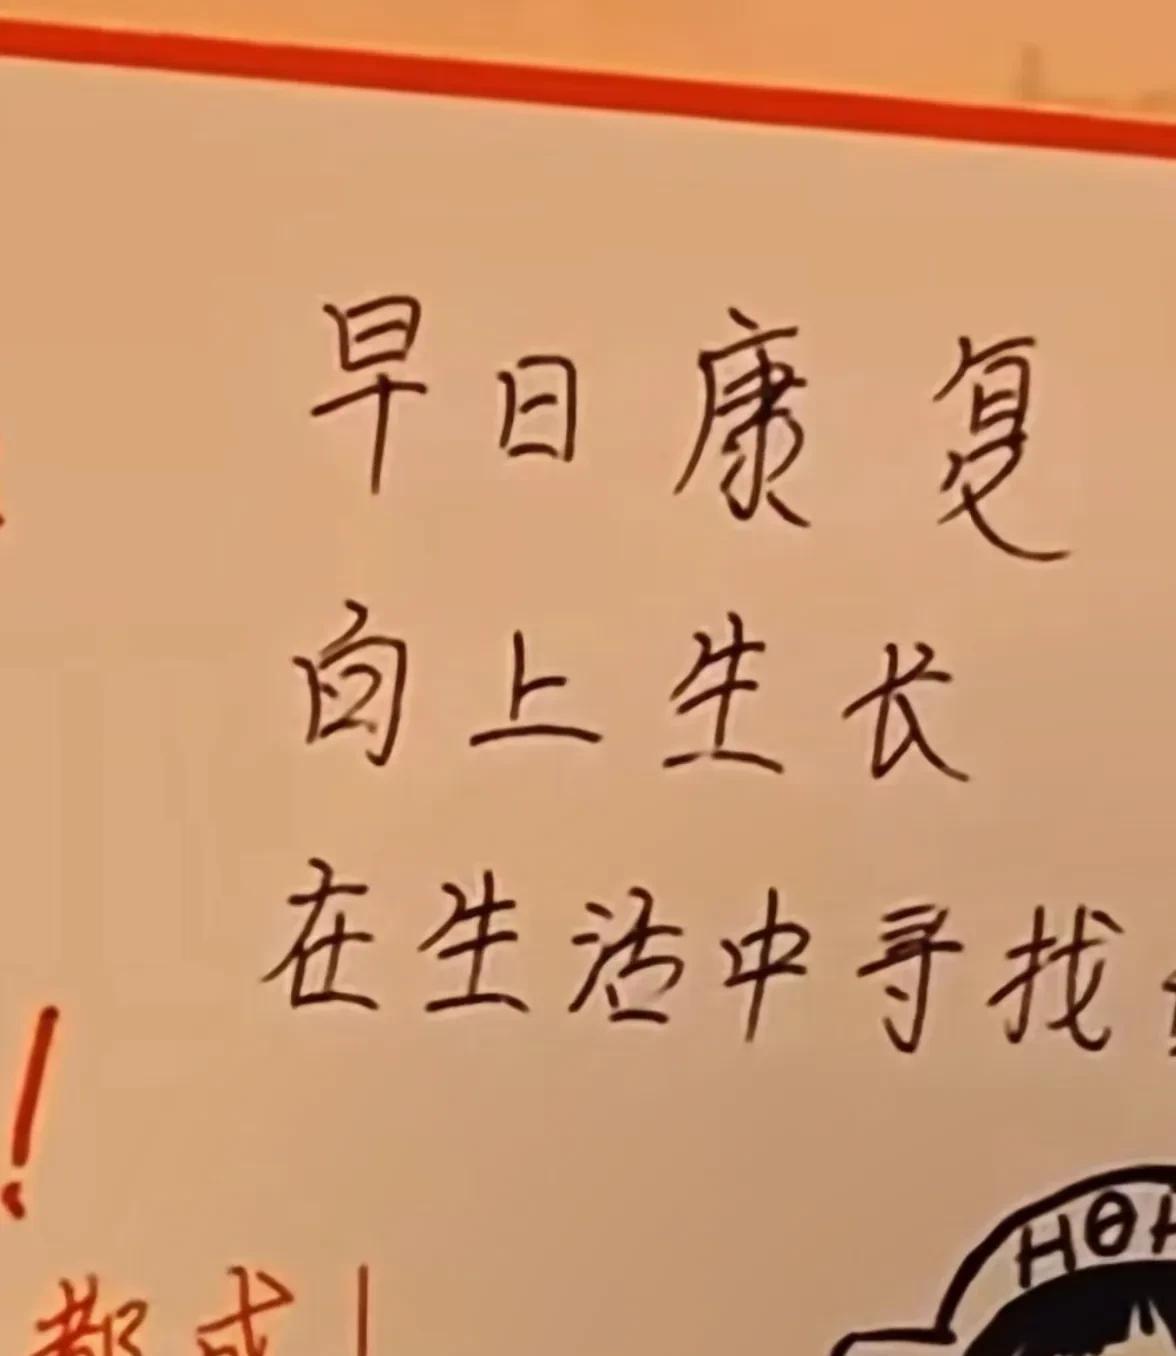 早日康复
向上生长
在生活中寻找
!
都成!
HOH